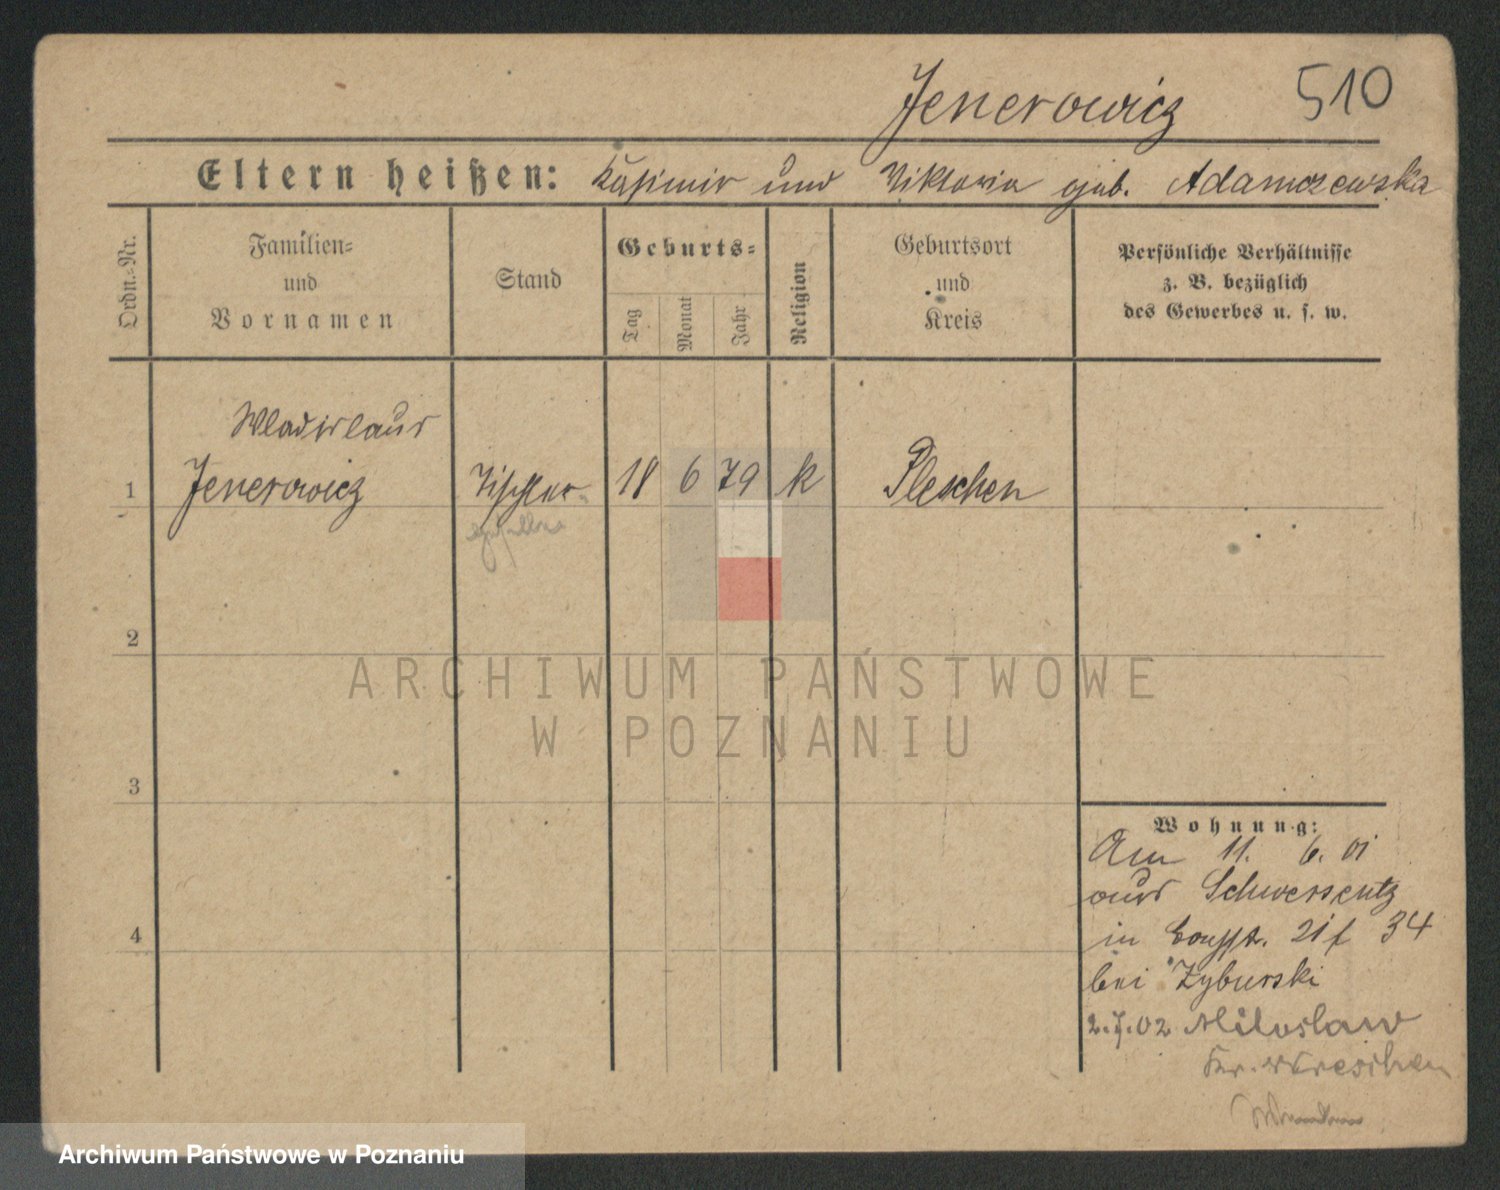 Jenerowicz 510
Eltern heißen: Kasimir und Viktoria geb. Adamczewska
Ordn.-Nr.
Familien-
und
Vornamen
Stand
Geburts-
Tag
Monat
Jahr
Religion
Geburtsort
und
Kreis
Persönliche Verhältnisse
z. B. bezüglich
des Gewerbes u. s. w.
Wladislaus
1 Jenerowicz Tischler 18 6 79 k Pleschen
2
3
4
ARCHIWUM PAŃSTWOWE
W POZNANIU
Wohnung:
Am 11. 6. 01
aus Schwersentz
in 34
bei Zyburski
2.7.02 Miloslaw
Kr. Wreschen
Archiwum Państwowe w Poznaniu